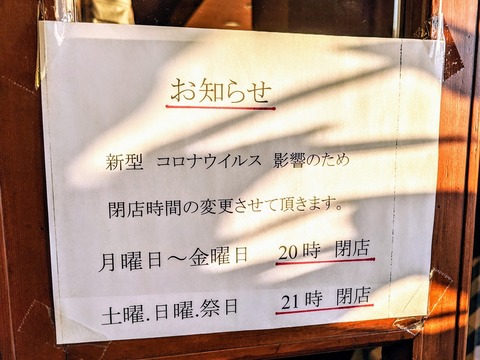 お知らせ
新型 コロナウイルス 影響のため
閉店時間の変更させて頂きます。
月曜日〜金曜日 20時 閉店
土曜.日曜.祭日 21時 閉店